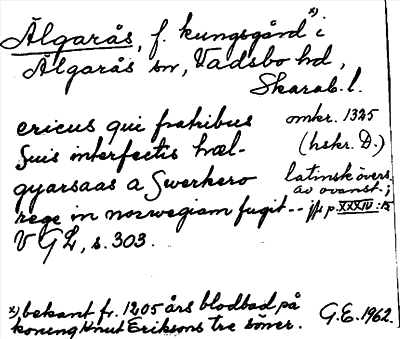 Älgarås, f. kungsgård x) i
Älgarås sn, Vadsbo hd,
Skarab. l.
ericus qui fratribus omkr. 1325
suis interfectis hæl- (hskr. D.)
gyarsaas a Swerkero latinsk övers.
av ovanst.;
rege in norwegiam fugit -- jfr p XXXIV:15
VGL, s. 303.
x) bekant fr. 1205 års blodbad på
konung Knut Eriksons tre söner. G.E. 1962.